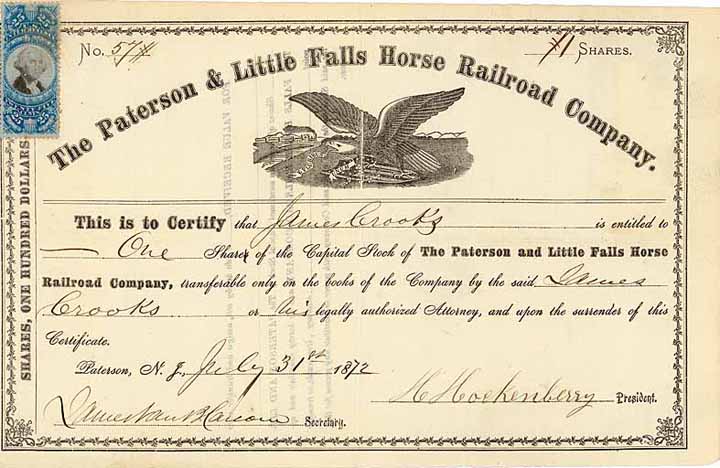 No. 57
1 SHARES.
The Paterson & Little Falls Horse Railroad Company.
SHARES, ONE HUNDRED DOLLARS
This is to Certify that James Crooks is entitled to
One Share of the Capital Stock of The Paterson and Little Falls Horse
Railroad Company, transferable only on the books of the Company by the said James
Crooks or his legally authorized Attorney, and upon the surrender of this
Certificate.
Paterson, N. J., July 31st 1872
H Hockenberry President.
James Van Blarcom Secretary.
FOR VALUE RECEIVED
25 25